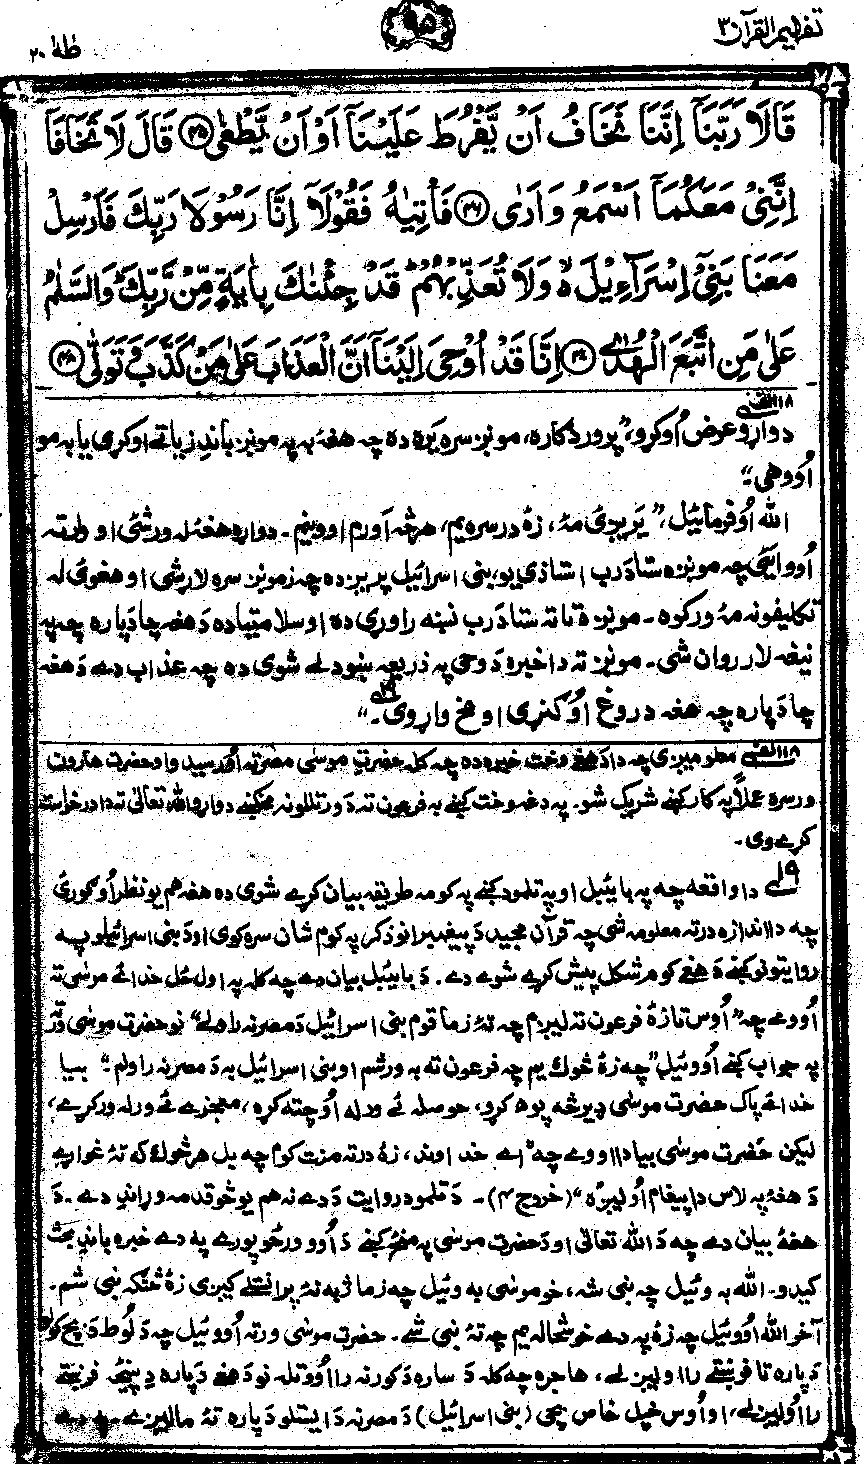 تفهيم القرآن ٣
٩٥
طٰهٰ ٢٠
قَالَا رَبَّنَآ اِنَّنَا نَخَافُ اَنْ يَّفْرُطَ عَلَيْنَآ اَوْ اَنْ يَّطْغٰى ﴿۴۵﴾ قَالَ لَا تَخَافَآ
اِنَّنِيْ مَعَكُمَآ اَسْمَعُ وَاَرٰى ﴿۴۶﴾ فَاْتِيٰهُ فَقُوْلَآ اِنَّا رَسُوْلَا رَبِّكَ فَاَرْسِلْ
مَعَنَا بَنِيْٓ اِسْرَآءِيْلَ ۙ وَلَا تُعَذِّبْهُمْ ؕ قَدْ جِئْنٰكَ بِاٰيَةٍ مِّنْ رَّبِّكَ ؕ وَالسَّلٰمُ
عَلٰى مَنِ اتَّبَعَ الْهُدٰى ﴿۴۷﴾ اِنَّا قَدْ اُوْحِيَ اِلَيْنَآ اَنَّ الْعَذَابَ عَلٰى مَنْ كَذَّبَ وَتَوَلّٰى ﴿۴۸﴾
دواړو عرض اُوکړو، ”پروردګاره، مونږ سره یره ده چه هغه به په مونږ باندِ زیاتے اوکړی یا به مو
اُووهی“
الله اُوفرمائیل، ”یریږئ مهٔ، زهٔ درسره یم، هر څه اَورم او وینم ۔ دواړه هغهٔ له ورشئ او ورته
اُووایئ چه مونږه ستا دَ رب استاذی یو، بنی اسرائیل پریږده چه زمونږ سره لار شی او هغوئ له
تکلیفونه مهٔ ورکوه ۔ مونږه تا ته ستا دَ رب نښه راوړی ده او سلامتیا ده دَ هغه چا دَپاره چه په
نیغه لار روان شی ۔ مونږ ته دا خبره دَ وحی په ذریعه ښودلے شوی ده چه عذاب دے دَ هغه
چا دَپاره چه هغه دروغ اُوګنړی او مخ واړوی ۔“
۱۸ الف معلومیږی چه دا دَ هغے وخت خبره ده چه کله حضرت موسٰی مصر ته اُورسیدو او حضرت هارون
ورسره عملاً په کار کښے شریک شو ۔ په دغه وخت کښے به فرعون ته دَ ورتللو نه مخکښے دواړو الله تعالٰی ته دا درخواست
کړے وی ۔
۱۹ دا واقعه چه په بائیبل او په تلمود کښے په کومه طریقه بیان کړے شوی ده هغه هم یو نظر اُوګورئ
چه دا اندازه درته معلومه شی چه قرآن مجید دَ پیغمبرانو ذکر په کوم شان سره کوی او دَ بنی اسرائیلو په
روایتونو کښے دَ هغے کوم شکل پیش کړے شوے دے ۔ دَ بائیبل بیان دے چه کله په اول ځل خدائے موسٰی ته
اُووے چه ”اُوس تا زهٔ فرعون ته لیږم چه تهٔ زما قوم بنی اسرائیل دَ مصر نه راولے“ نو حضرت موسٰی ورته
په جواب کښے اُووئیل ”چه زهٔ څوک یم چه فرعون ته به ورشم او بنی اسرائیل به دَ مصر نه راولم ۔“ بیا
خدائے پاک حضرت موسٰی ډیر څه پوهه کړو، حوصله ئے ورله اُوچته کړه، معجزے ئے ورله ورکړے،
لیکن حضرت موسٰی بیا دا اووے چه ”اے خداوند، زهٔ درته منت کوم چه بل هر څوک که تهٔ غواړے
دَ هغهٔ په لاس دا پیغام اُولیږه“ (خروج ۴) ۔ دَ تلمود روایت دَ دے نه هم یو څو قدمه وړاندِ دے ۔ دَ
هغهٔ بیان دے چه دَ الله تعالٰی او دَ حضرت موسٰی په منځ کښے دَ اُوو ورځو پورے په دے خبره باندِ بحث
کیدو ۔ الله به وئیل چه نبی شه، خو موسٰی به وئیل چه زما ژبه نهٔ پرانستلے کیږی زهٔ څنګه نبی شم ۔
آخر الله اُووئیل چه زهٔ په دے خوشحالیم چه تهٔ نبی شے ۔ حضرت موسٰی ورته اُووئیل چه دَ لُوط دَ بچ کولو
دَپاره تا فرښتے را اولیږلے، هاجره چه کله دَ ساره دَ کور نه را اُووتله نو دَ هغے دَپاره دِ پنځهٔ فرښتے
را اُولیږلے، او اُوس خپل خاص بچی (بنی اسرائیل) دَ مصر نه دَ ایستلو دَپاره تهٔ ما لیږے ۔ په دے